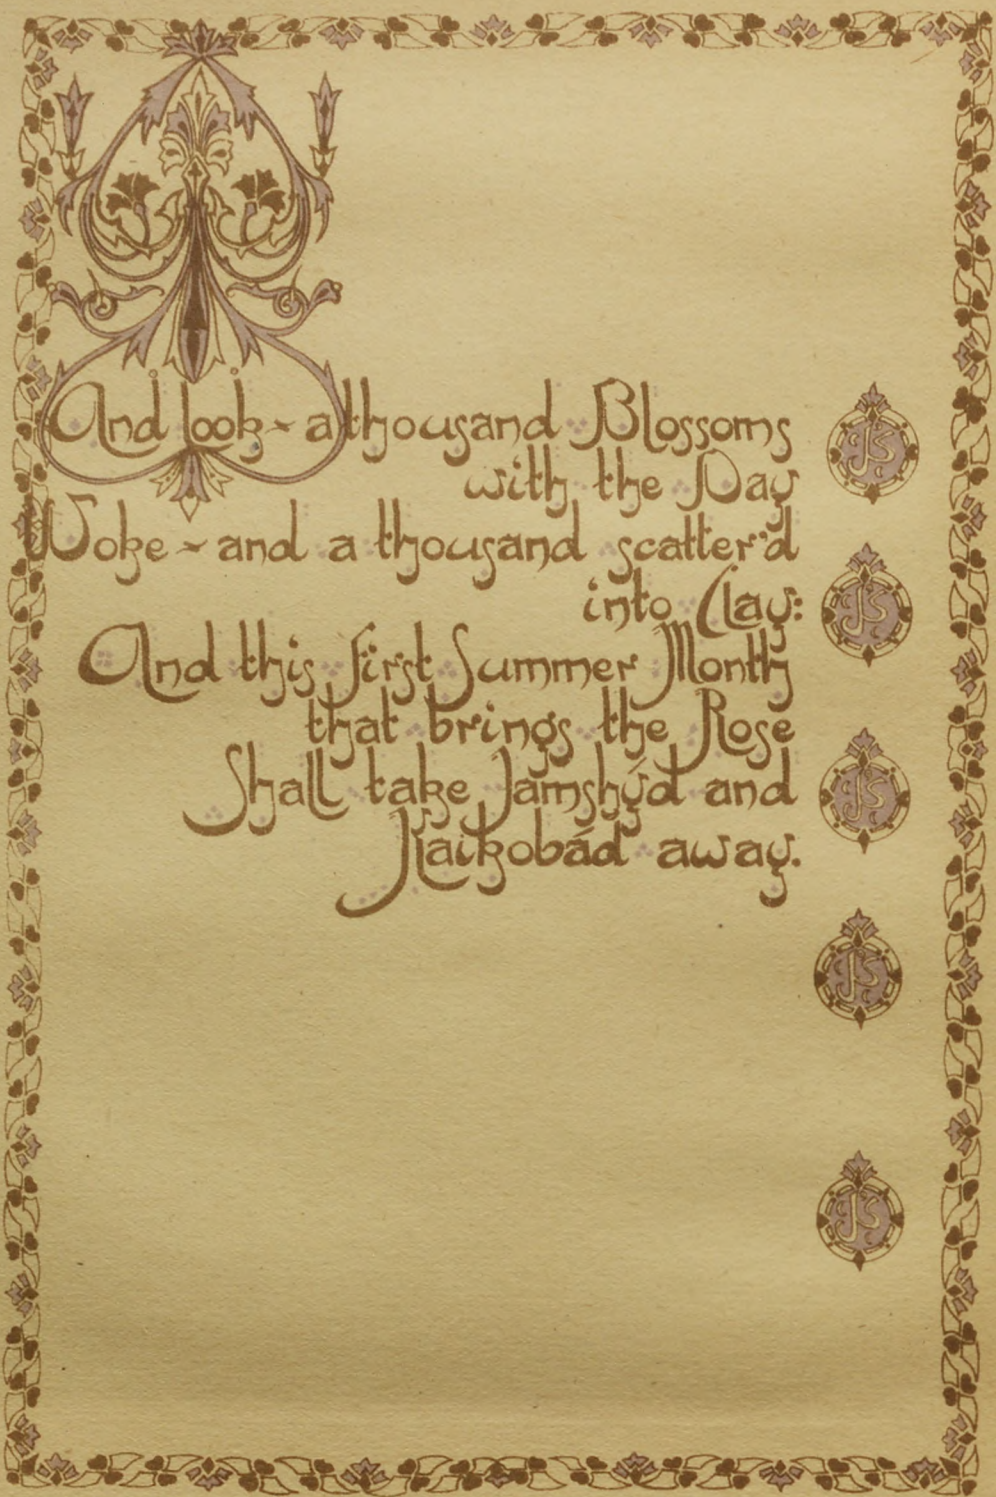 And look - a thousand Blossoms
with the Day
Woke - and a thousand scatter'd
into Clay:
And this first Summer Month
that brings the Rose
Shall take Jamshýd and
Kaikobád away.
JS
JS
JS
JS
JS